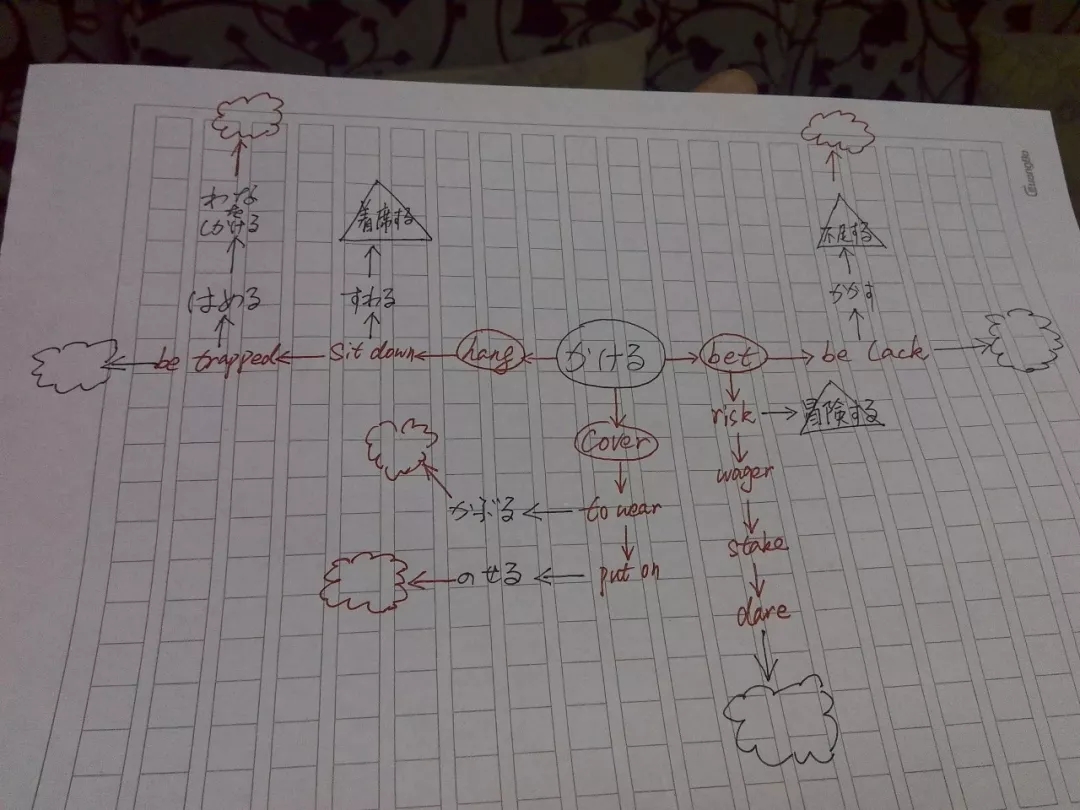 GuangBo
わな
を
しかける
着席する
不足する
はめる
すわる
かかす
be trapped
Sit down
hang
かける
bet
be lack
risk
冒険する
Cover
wager
かぶる
to wear
stake
のせる
put on
dare